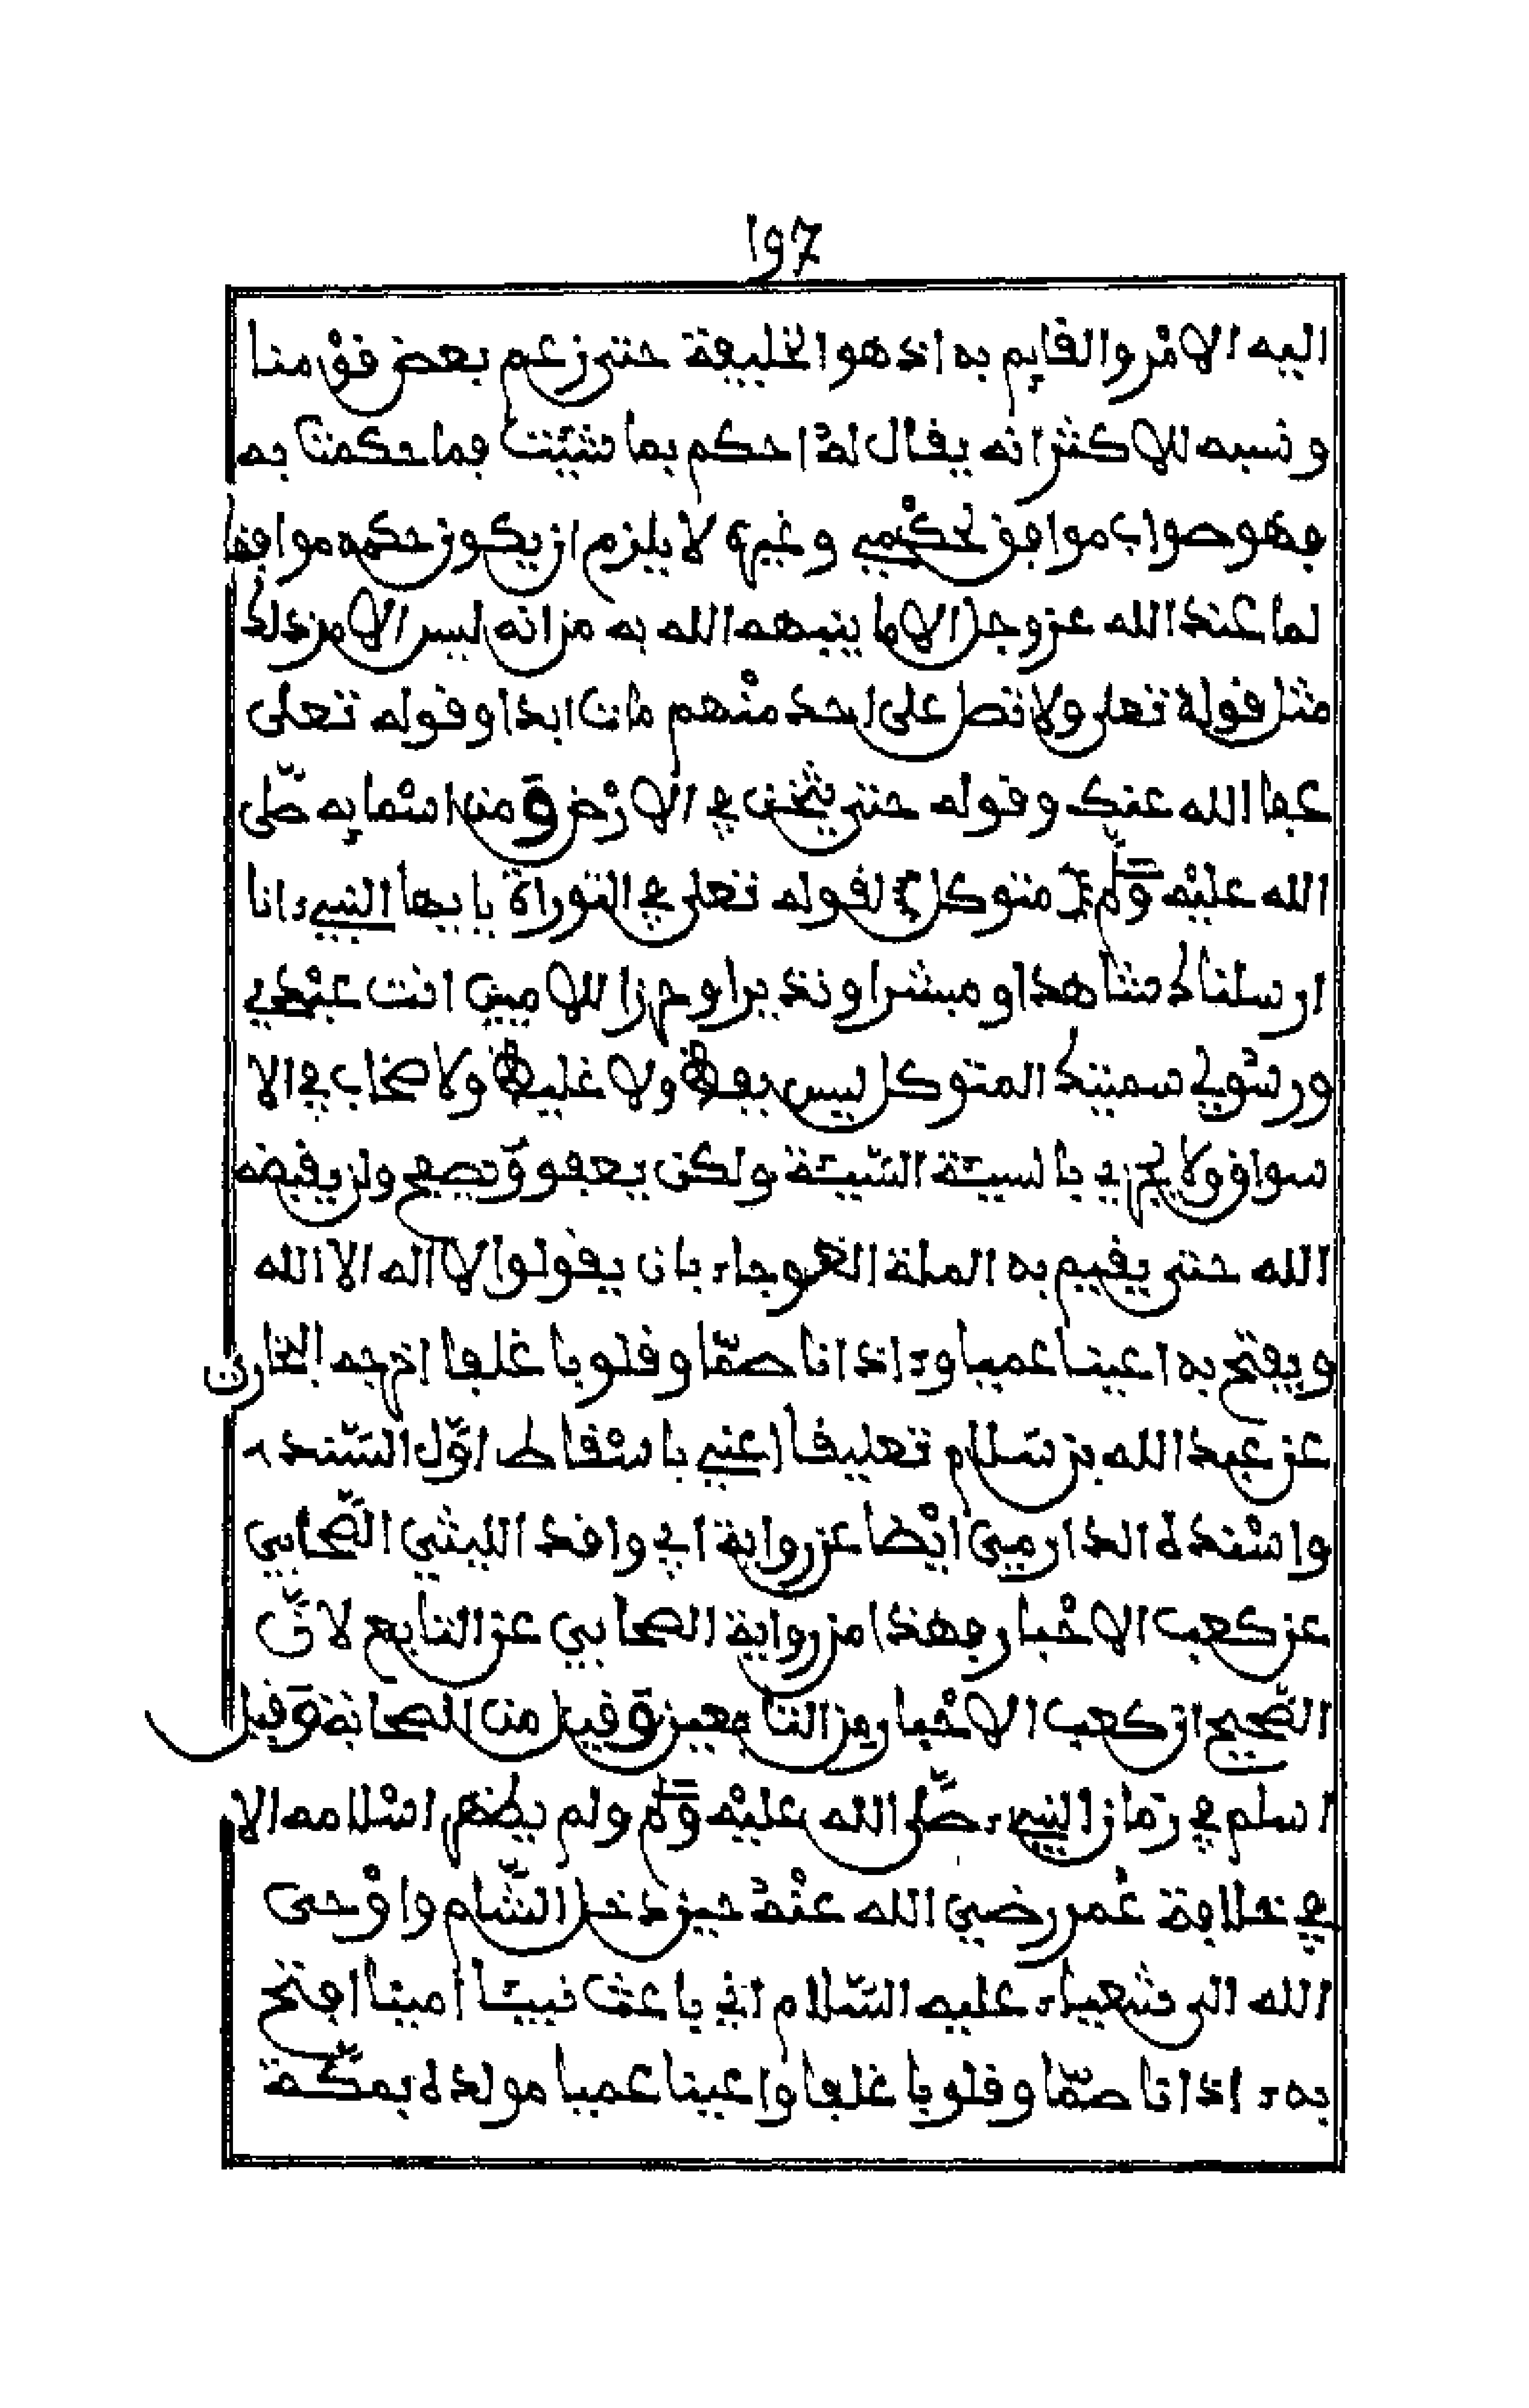 197
اليه الامر والقايم به اذ هو الخليفة حتى زعم بعض قومنا
ونسبه للاكثر انه يقال له احكم بما شئت فما حكمت به
فهو صواب موافق لحكمي وغيره لا يلزم ان يكون حكمه موافقا
لما عند الله عز وجل الا ما ينبهه الله به من انه ليس الامر كذلك
مثل قوله تعلى ولا تصل على احد منهم مات ابدا وقوله تعلى
عفا الله عنك وقوله حتى يثخن في الارض ومن اسمايه صلى
الله عليه وسلم متوكل لقوله تعلى في التوراة يا يها النبيء انا
ارسلناك شاهدا ومبشرا ونذيرا وحرزا للاميين انت عبدي
ورسولي سميتك المتوكل ليس بفظ ولا غليظ ولا صخاب في الا
سواق ولا يجزي بالسيئة السيئة ولكن يعفو ويصفح ولن يقبضه
الله حتى يقيم به الملة العوجاء بان يقولوا لا اله الا الله
ويفتح به اعينا عميا وءاذانا صما وقلوبا غلفا اخرجه البخاري
عن عبد الله بن سلام تعليقا اعني باسقاط اول السند
واسنده الدارمي ايضا عن رواية ابي واقد الليثي الصحابي
عن كعب الاحبار فهذا من رواية الصحابي عن التابع لان
الصحيح ان كعب الاحبار من التابعين وقيل من الصحابة وقيل
اسلم في زمان النبيء صلى الله عليه وسلم ولم يظهر اسلامه الا
في خلافة عمر رضي الله عنه حين دخل الشام واوحى
الله الى شعياء عليه السلام اني باعث نبيئا اميا افتح
به ءاذانا صما وقلوبا غلفا واعينا عميا مولده بمكة